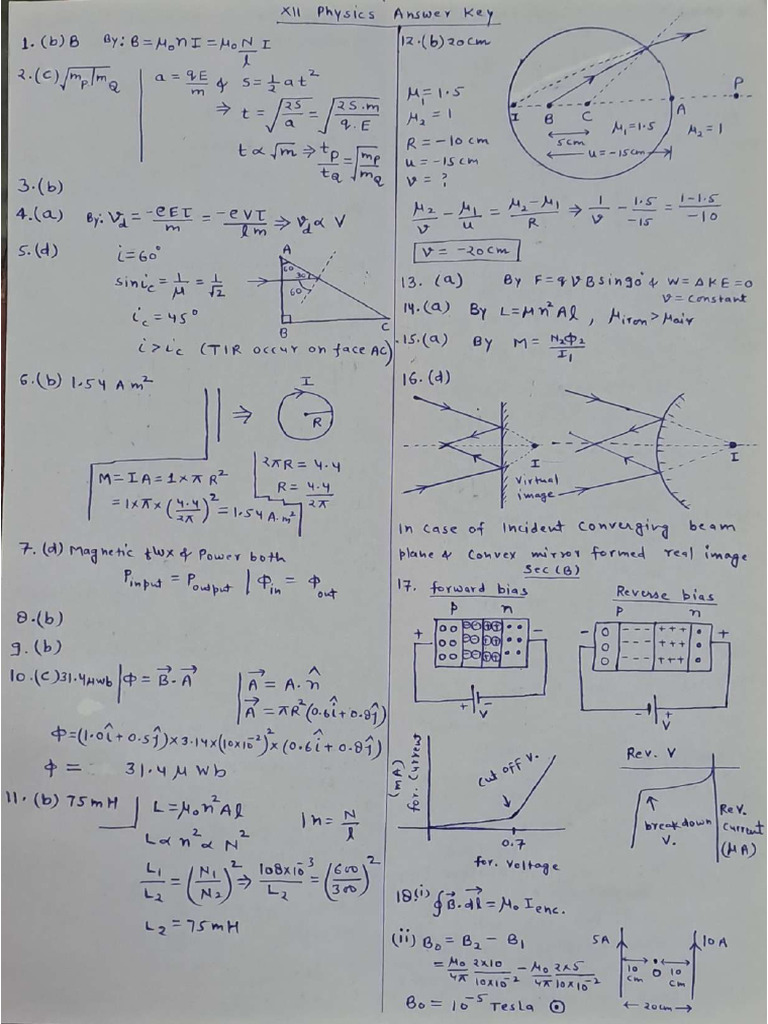 XII Physics Answer Key
1. (b) B By: B = μ₀nI = μ₀ N/l I
2. (c) √mP/mQ
a = qE/m & s = 1/2 at²
⇒ t = √2S/a = √2S.m/q.E
t ∝ √m ⇒ tP/tQ = √mP/mQ
3. (b)
4. (a) By: Vd = -eEτ/m = -eVτ/lm ⇒ Vd ∝ V
5. (d) i = 60°
sin ic = 1/μ = 1/√2
ic = 45°
i > ic (TIR occur on face AC)
A
60 30
60
B
C
6. (b) 1.54 A m²
⇒
I
R
M = IA = 1 × π R²
= 1×π×(4.4/2π)² = 1.54 A.m²
2πR = 4.4
R = 4.4/2π
7. (d) Magnetic flux & Power both
Pinput = Poutput | Φin = Φout
8. (b)
9. (b)
10. (c) 31.4 μwb | Φ = B⃗.A⃗
A⃗ = A.n̂
A⃗ = πR²(0.6î + 0.8ĵ)
Φ = (1.0î + 0.5ĵ) × 3.14 × (10×10⁻²)² × (0.6î + 0.8ĵ)
Φ = 31.4 μ Wb
11. (b) 75 mH
L = μ₀n²Al | n = N/l
L ∝ n² ∝ N²
L₁/L₂ = (N₁/N₂)² ⇒ 108×10⁻³/L₂ = (600/300)²
L₂ = 75 mH
12. (b) 20 cm
μ₁ = 1.5
μ₂ = 1
R = -10 cm
u = -15 cm
v = ?
I B C A P
5cm
μ₁ = 1.5 μ₂ = 1
u = -15cm
μ₂/v - μ₁/u = μ₂-μ₁/R ⇒ 1/v - 1.5/-15 = 1-1.5/-10
v = -20cm
13. (a) By F = qVB sin90° & W = ΔKE = 0
v = constant
14. (a) By L = μn²Al , μiron > μair
15. (a) By M = N₂Φ₂/I₁
16. (d)
I
Virtual
image
I
In case of Incident Converging beam
plane & Convex mirror formed real image
Sec (B)
17. forward bias
P n
+ -
+ -
V
Reverse bias
P n
- +
- +
V
(mA)
for. Current
cut off V.
0.7
for. Voltage
Rev. V
breakdown
V.
Rev.
Current
(μA)
18. (i) ∮B⃗.dl⃗ = μ₀ Ienc.
(ii) B₀ = B₂ - B₁
= μ₀/4π 2×10/10×10⁻² - μ₀/4π 2×5/10×10⁻²
B₀ = 10⁻⁵ Tesla ⊙
5A 10A
10 cm O 10 cm
20cm